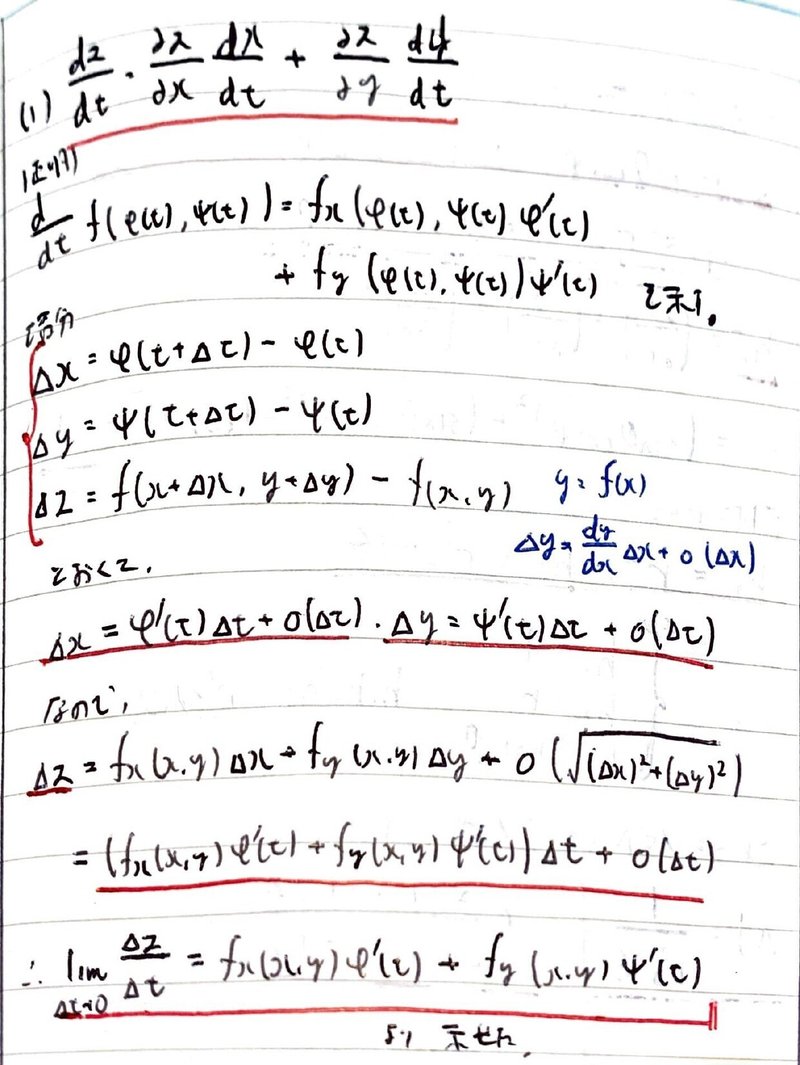 (1) dz/dt = ∂z/∂x dx/dt + ∂z/∂y dy/dt
(証明)
d/dt f(φ(t), ψ(t)) = fx(φ(t), ψ(t) φ'(t)
+ fy(φ(t), ψ(t))ψ'(t) を示す。
増分
Δx = φ(t+Δt) - φ(t)
Δy = ψ(t+Δt) - ψ(t)
Δz = f(x+Δx, y+Δy) - f(x,y) y = f(x)
Δy = dy/dx Δx + o(Δx)
とおくと、
Δx = φ'(t)Δt + o(Δt). Δy = ψ'(t)Δt + o(Δt)
なので、
Δz = fx(x,y)Δx + fy(x,y)Δy + o(√(Δx)²+(Δy)²)
= (fx(x,y)φ'(t) + fy(x,y)ψ'(t))Δt + o(Δt)
∴ lim Δt→0 Δz/Δt = fx(x,y)φ'(t) + fy(x,y)ψ'(t)
より 示せた.